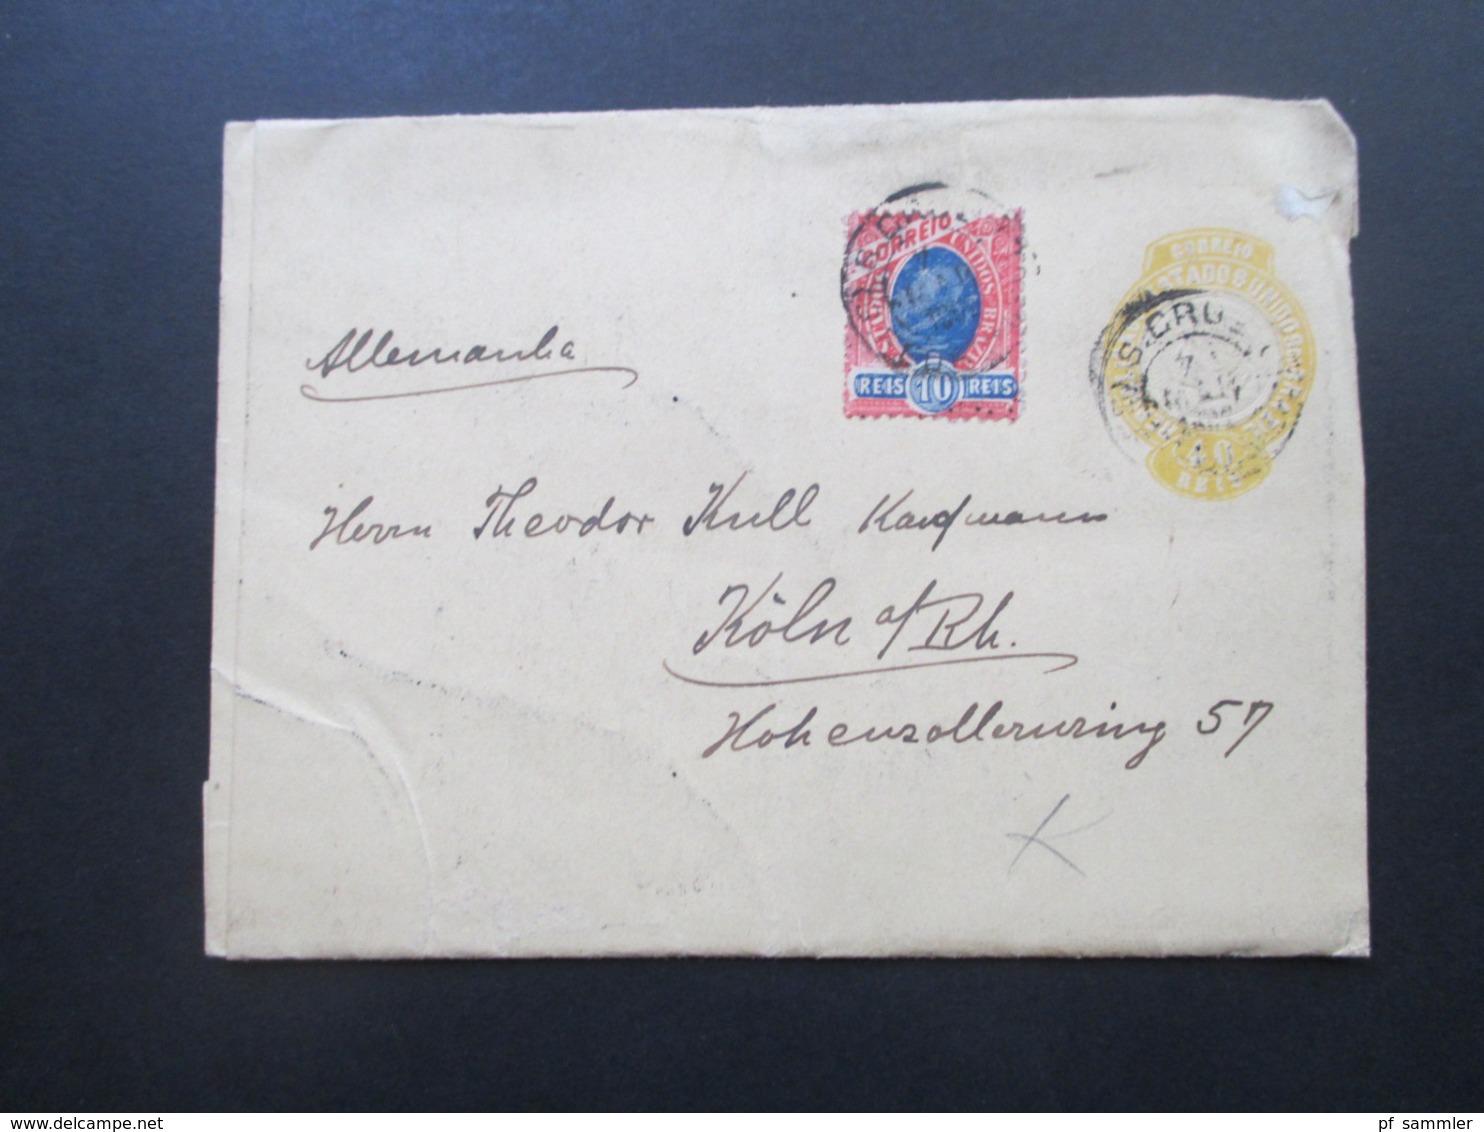 CORREIO
ESTADOS UNIDOS BRAZIL
REIS 10 REIS
CORREIO
ESTADOS UNIDOS BRAZIL
S. CRUZ
40
REIS
Allemanha
Herrn Theodor Kull Kaufmann
Köln a/Rh.
Hohenzollernring 57
K
www.delcampe.net
pf_sammler